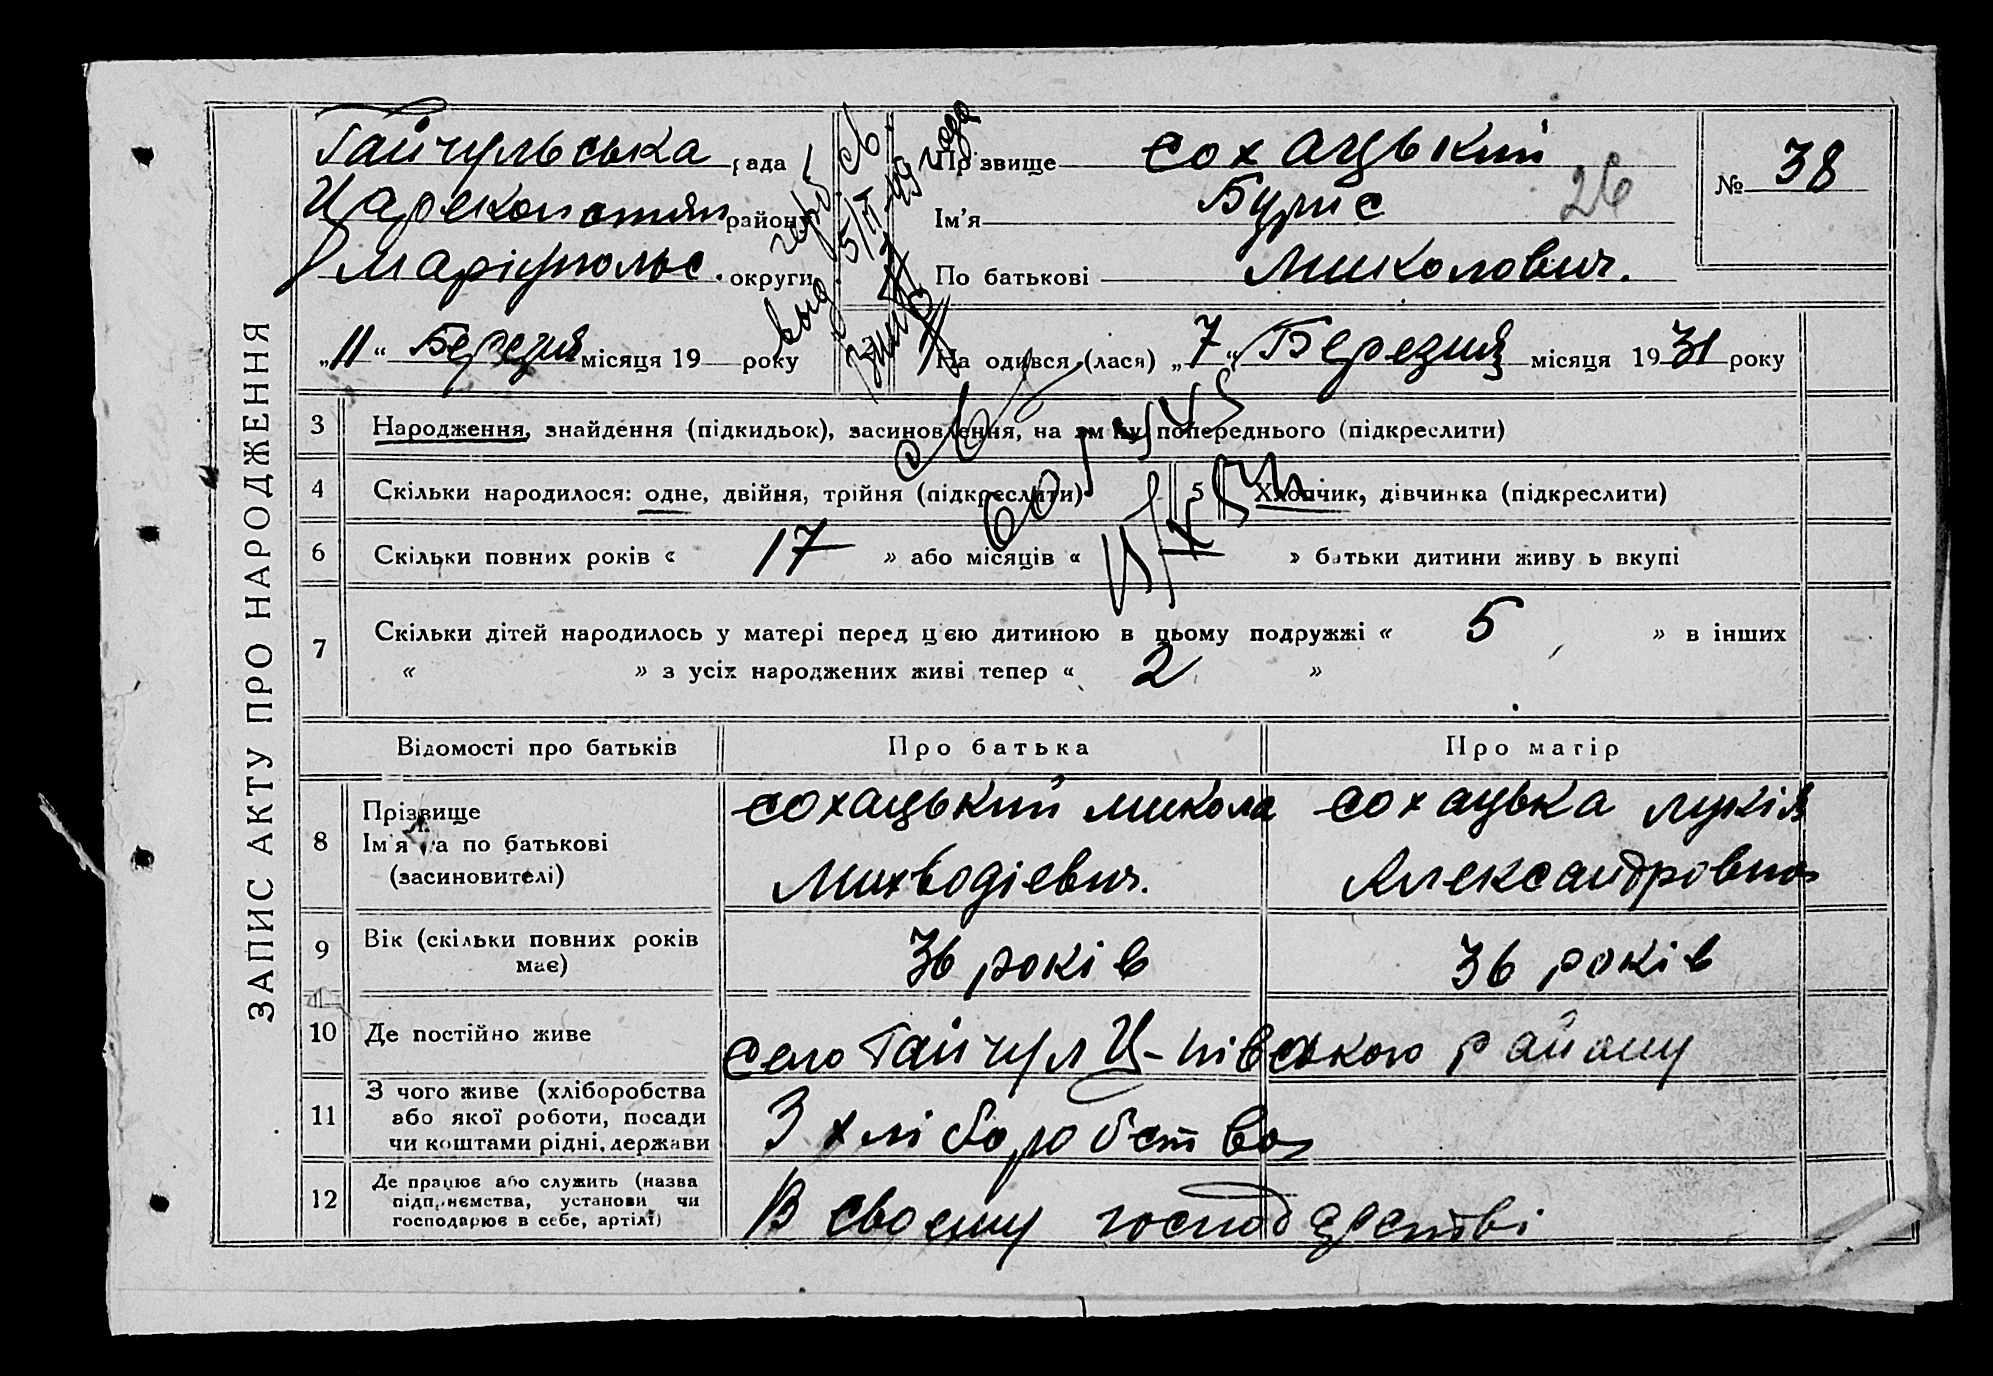 ЗАПИС АКТУ ПРО НАРОДЖЕННЯ
Гайчульська рада
Царекон район
Маріупольс. округи
„11“ Березня місяця 19 року
Прізвище Сохацький
Ім'я Бурис
26
По батькові Миколович.
№ 38
На одився (лася) „7“ Березня місяця 1931 року
3 Народження, знайдення (підкидьок), засиновлення, на зміну попереднього (підкреслити)
4 Скільки народилося: одне, двійня, трійня (підкреслити)
5 Хлопчик, дівчинка (підкреслити)
6 Скільки повних років « 17 » або місяців « » батьки дитини живу ь вкупі
7 Скільки дітей народилось у матері перед цією дитиною в цьому подружжі « 5 » в інших
« » з усіх народжених живі тепер « 2 »
Відомості про батьків Про батька Про матір
8 Прізвище
Ім'я та по батькові
(засиновителі)
Сохацький Микола
Михтодієвич.
Сохацька Лукія
Александровна
9 Вік (скільки повних років
має)
36 років 36 років
10 Де постійно живе село Гайчул Ц-нівського району
11 З чого живе (хліборобства
або якої роботи, посади
чи коштами рідні, держави
З хліборобства
12 Де працює або служить (назва
підприємства, установи чи
господарює в себе, артілі)
В своєму